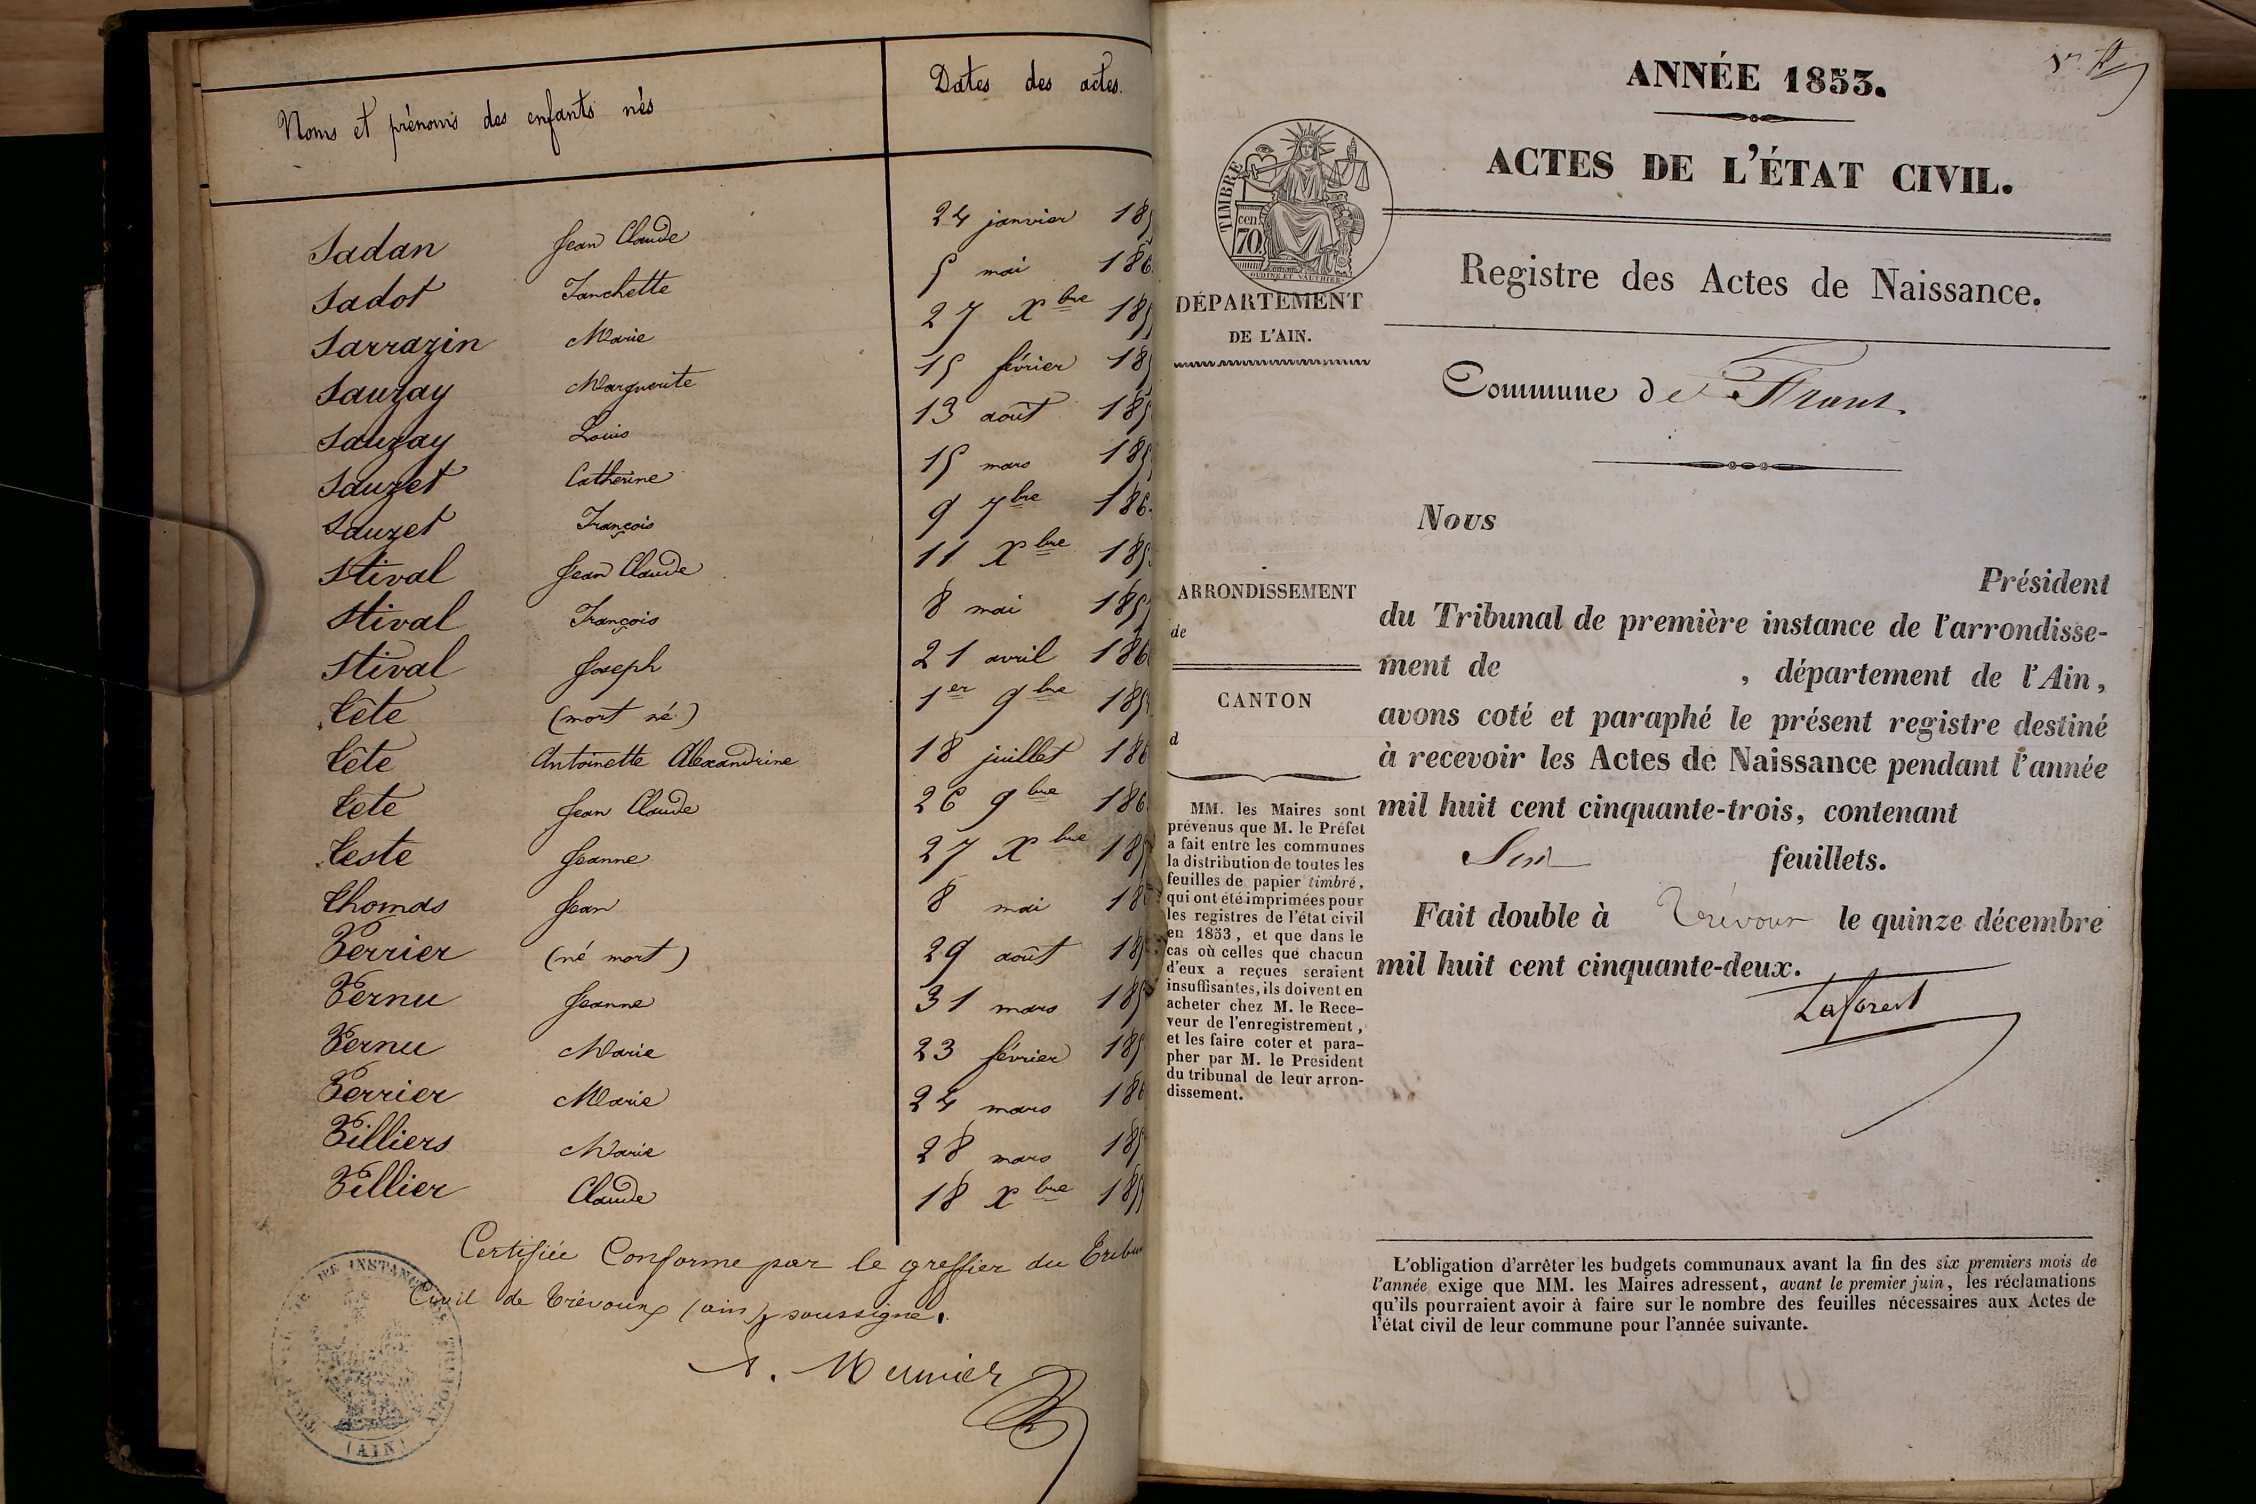 Noms et prénoms des enfants nés Dates des actes.
Sadan Jean Claude 24 janvier 185
Sadot Fanchette 5 mai 186
Sarrazin Marie 27 Xbre 185
Sauzay Marguerite 15 février 185
Sauzay Louis 13 août 185
Sauzet Catherine 15 mars 185
Sauzet François 9 7bre 186
Stival Jean Claude 11 Xbre 185
Stival François 8 mai 185
Stival Joseph 21 avril 186
Tête (mort né) 1er 9bre 185
Tête Antoinette Alexandrine 18 juillet 186
Tête Jean Claude 26 9bre 186
Teste Jeanne 27 Xbre 185
Thomas Jean 8 mai 18
Verrier (né mort) 29 août 18
Vernu Jeanne 31 mars 185
Vernu Marie 23 février 185
Verrier Marie 24 mars 186
Villiers Marie 28 mars 185
Villier Claude 18 Xbre 185
Certifiée Conforme par le greffier du Tribu
Civil de Trévoux (ain) soussigné.
A. Meunier
(AIN)
ANNÉE 1853.
ACTES DE L'ÉTAT CIVIL.
TIMBRE
cen.
70
OUDINÉ ET VAUTHIER
DÉPARTEMENT
DE L'AIN.
Registre des Actes de Naissance.
Commune de Frans.
Nous
Président
du Tribunal de première instance de l'arrondisse-
ment de , département de l'Ain,
avons coté et paraphé le présent registre destiné
à recevoir les Actes de Naissance pendant l'année
mil huit cent cinquante-trois, contenant
feuillets.
Fait double à Trévoux le quinze décembre
mil huit cent cinquante-deux.
Laforest
ARRONDISSEMENT
de
CANTON
d
MM. les Maires sont
prévenus que M. le Préfet
a fait entre les communes
la distribution de toutes les
feuilles de papier timbré,
qui ont été imprimées pour
les registres de l'état civil
en 1853, et que dans le
cas où celles que chacun
d'eux a reçues seraient
insuffisantes, ils doivent en
acheter chez M. le Rece-
veur de l'enregistrement,
et les faire coter et para-
pher par M. le Président
du tribunal de leur arron-
dissement.
L'obligation d'arrêter les budgets communaux avant la fin des six premiers mois de
l'année exige que MM. les Maires adressent, avant le premier juin, les réclamations
qu'ils pourraient avoir à faire sur le nombre des feuilles nécessaires aux Actes de
l'état civil de leur commune pour l'année suivante.